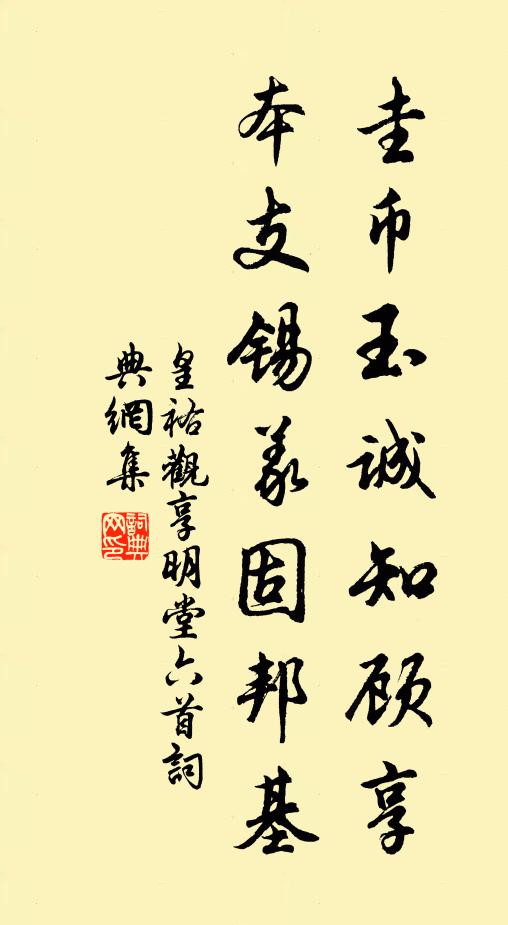 圭币玉诚知顾享
本支锡羡固邦基
皇祐觀享明堂六首詞
典網集
詞典
网印